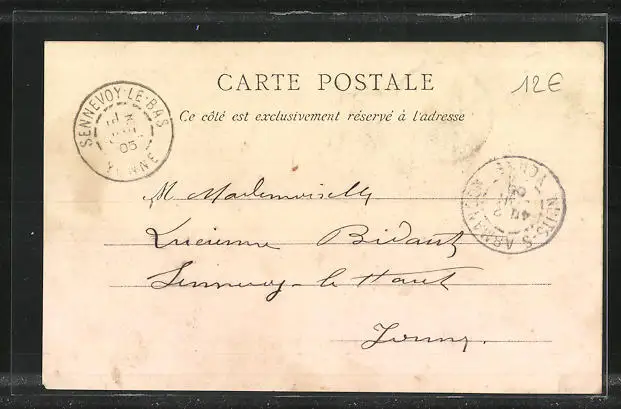 CARTE POSTALE
12€
Ce côté est exclusivement réservé à l'adresse
SENNEVOY-LE-BAS
05
YONNE
NUITS-S-ARMANÇON
YONNE
M Mademoiselle
Lucienne Bidaut
Sennevoy-le Haut
Yonne.